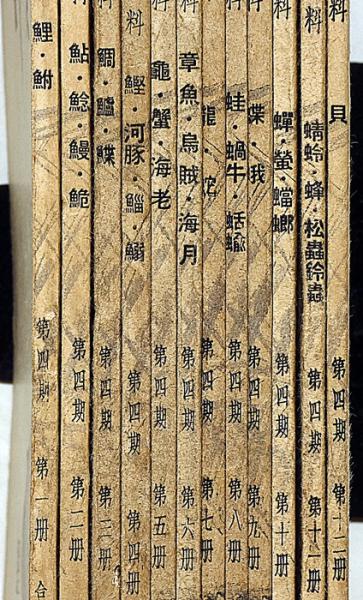 鯉・鮒 第四期 第一册 合
料 鮎・鯰・鰻・鮠 第四期 第二册
料 鯛・鱸・鰈 第四期 第三册
料 鰹・河豚・鯔・鰯 第四期 第四册
料 龜・蟹・海老 第四期 第五册
料 章魚・烏賊・海月 第四期 第六册
料 龍・蛇 第四期 第七册
料 蛙・蝸牛・蛞蝓 第四期 第八册
料 蝶・蛾 第四期 第九册
料 蟬・螢・蟷螂 第四期 第十册
料 蜻蛉・蜂・松蟲鈴蟲 第四期 第十一册
料 貝 第四期 第十二册